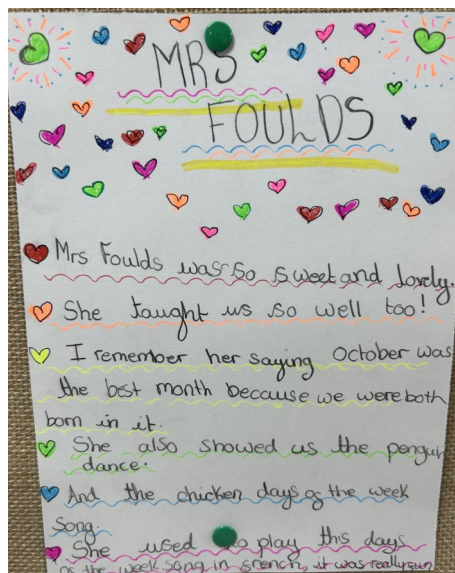 MRS
FOULDS
Mrs Foulds was so sweet and lovely.
She taught us so well too!
I remember her saying October was
the best month because we were both
born in it.
She also showed us the penguin
dance.
And the chicken days of the week
song.
She used to play this days
of the week song in french, it was really fun